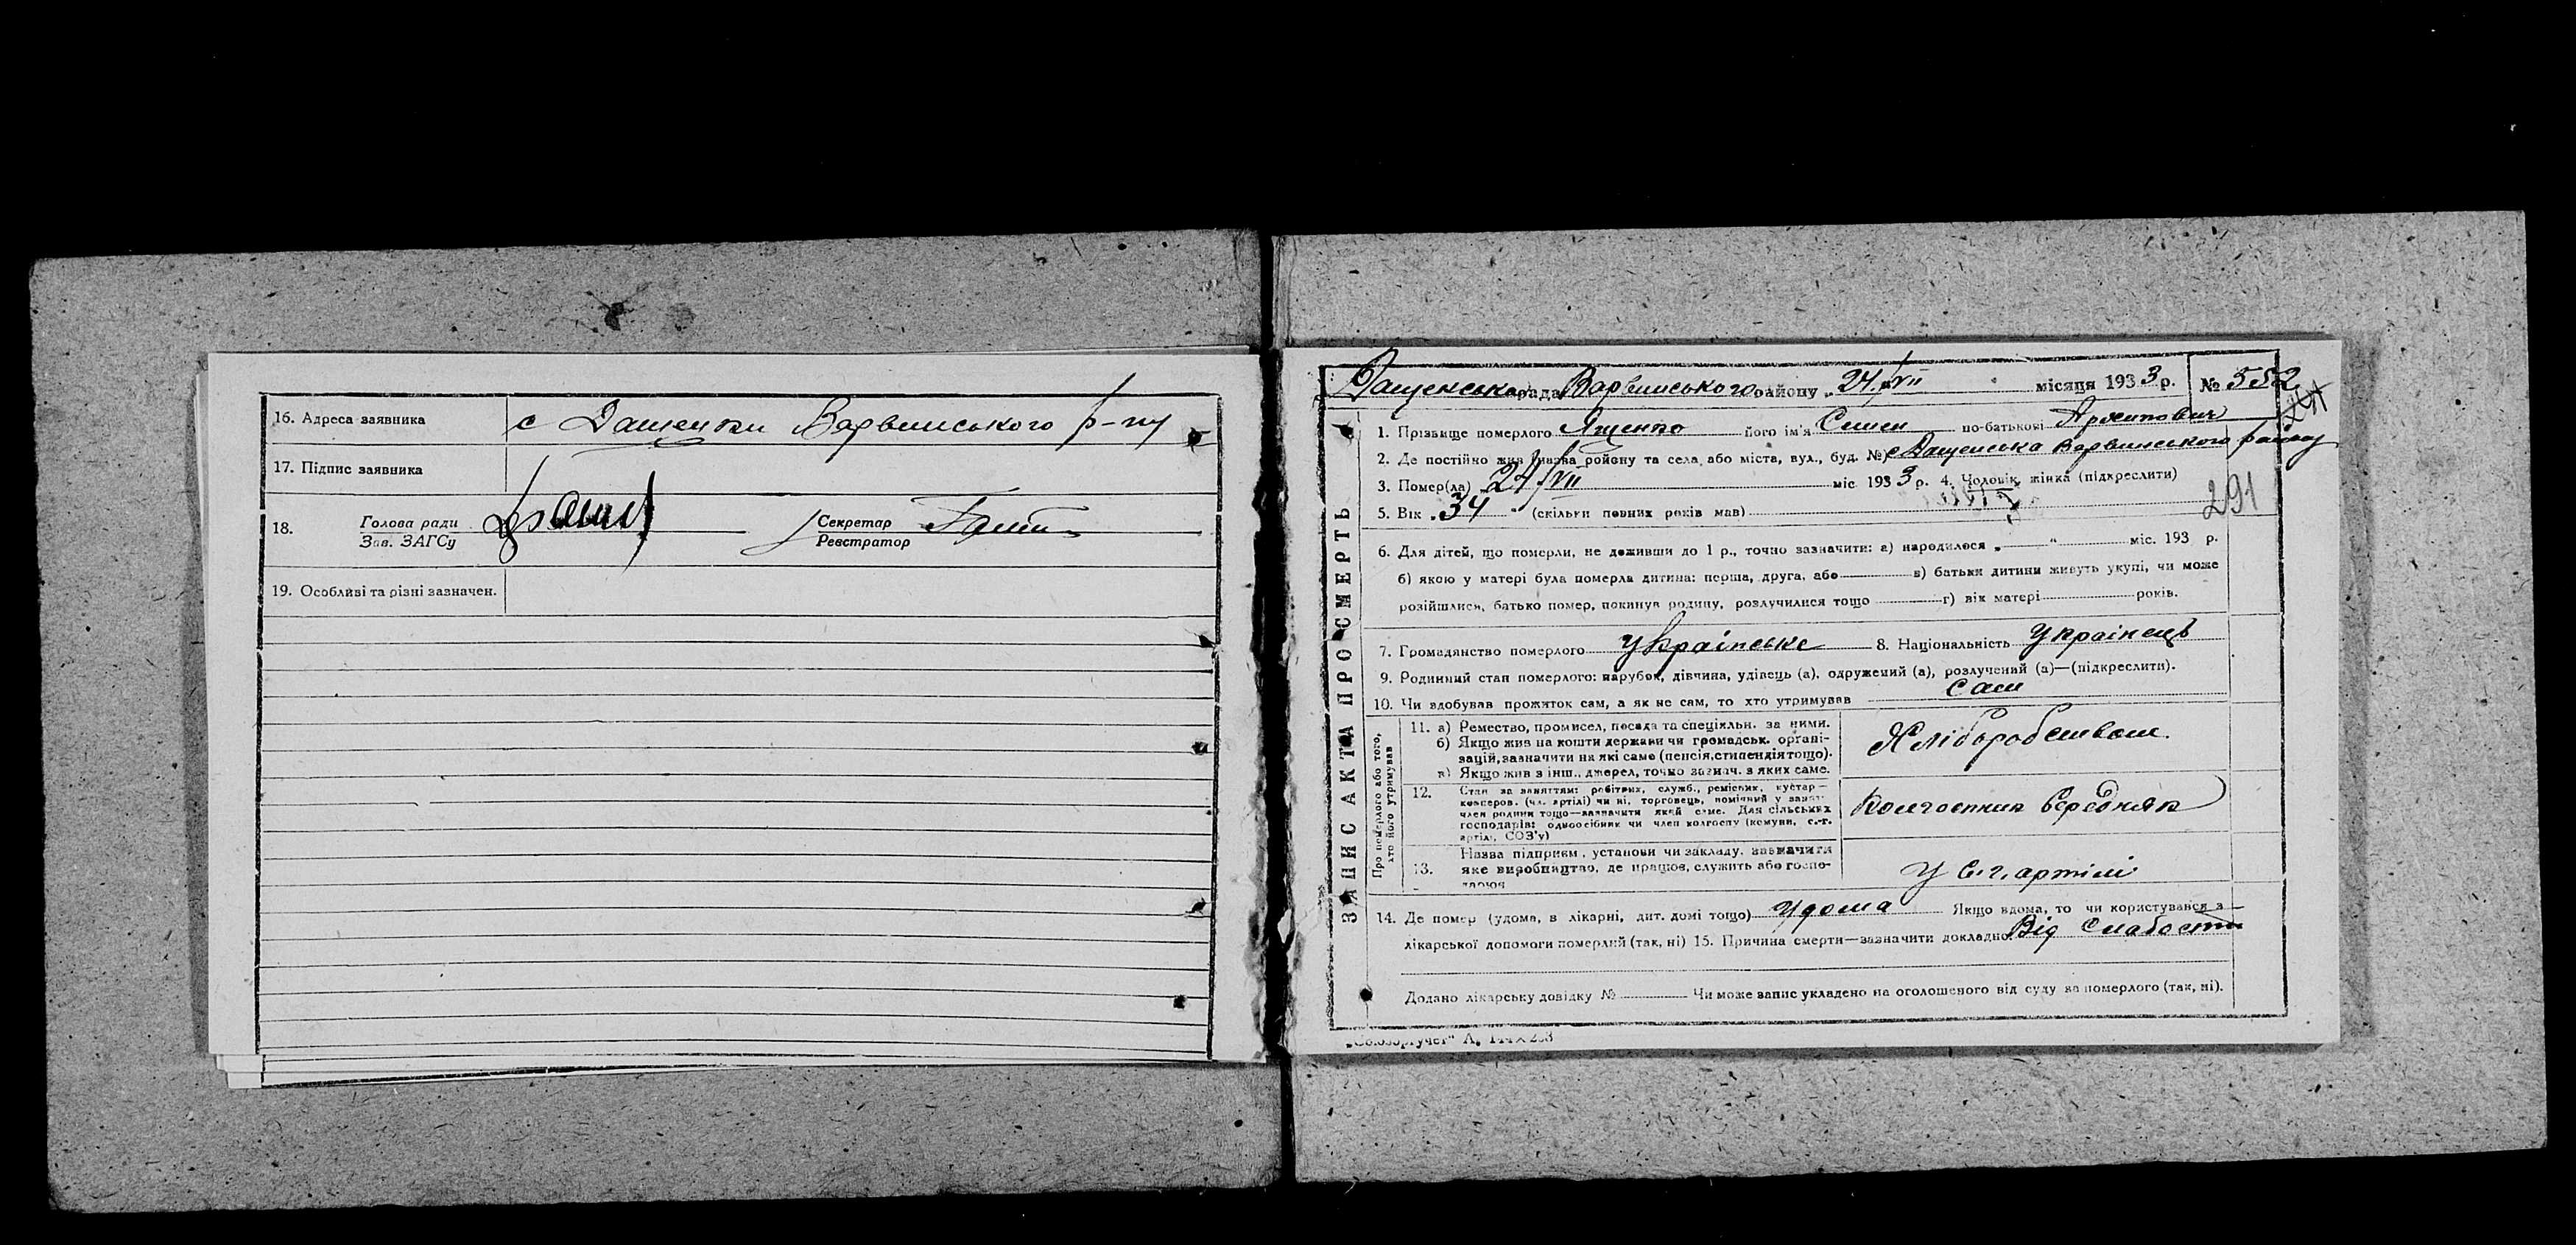 16. Адреса заявника с Дащенки Варвинського р-ну
17. Підпис заявника
18. Голова ради Секретар
Зав. ЗАГСу Реєстратор
19. Особливі та різні зазначен.
ЗАПИС АКТА ПРО СМЕРТЬ
Дащенська рада Варвинського району 24/VII місяця 1933 р. № 552
1. Прізвище померлого Ященко його ім'я Семен по-батькові Архипович
2. Де постійно жив (назва району та села, або міста, вул., буд. №) с Дащенька Варвинського району
3. Помер(ла) 24/VII міс 1933 р. 4. Чоловік, жінка (підкреслити)
5. Вік 34 (скільки повних років мав)
291
6. Для дітей, що померли, не доживши до 1 р., точно зазначити: а) народилося „ “ міс. 193 р.
б) якою у матері була померла дитина: перша, друга, або в) батьки дитини живуть укупі, чи може
розійшлися, батько помер, покинув родину, розлучилися тощо г) вік матері років.
7. Громадянство померлого українське 8. Національність Українець
9. Родинний стан померлого: парубок, дівчина, удівець (а), одружений (а), розлучений (а)—(підкреслити).
10. Чи здобував прожиток сам, а як не сам, то хто утримував сам
Про померлого або того, хто його утримував
11. а) Ремество, промисел, посада та спеціяльн. за ними.
б) Якщо жив на кошти держави чи громадськ. органі-
зацій, зазначити на які саме (пенсія, стипендія тощо).
в) Якщо жив з інш.. джерел, точно зазнач. з яких саме.
Хліборобством.
12. Стан за заняттям: робітник, служб., ремісник, кустар—
кооперов. (чл. артілі) чи ні, торговець,
член родини тощо—зазначити який саме. Для сільських
господарів: одноосібник чи член колгоспу (комуни, с.-г.
артілі, СОЗ'у)
Колгоспник Середняк
13. Назва підприєм., установи чи закладу, зазначити
яке виробництво, де працює, служить або госпо-
дарює
у С.г. артілі
14. Де помер (удома, в лікарні, дит. домі тощо) Удома Якщо вдома, то чи користувався з
лікарської допомоги померлий (так, ні) 15. Причина смерти—зазначити докладно Від Слабости
Додано лікарську довідку № Чи може запис укладено на оголошеного від суду за померлого (так, ні).